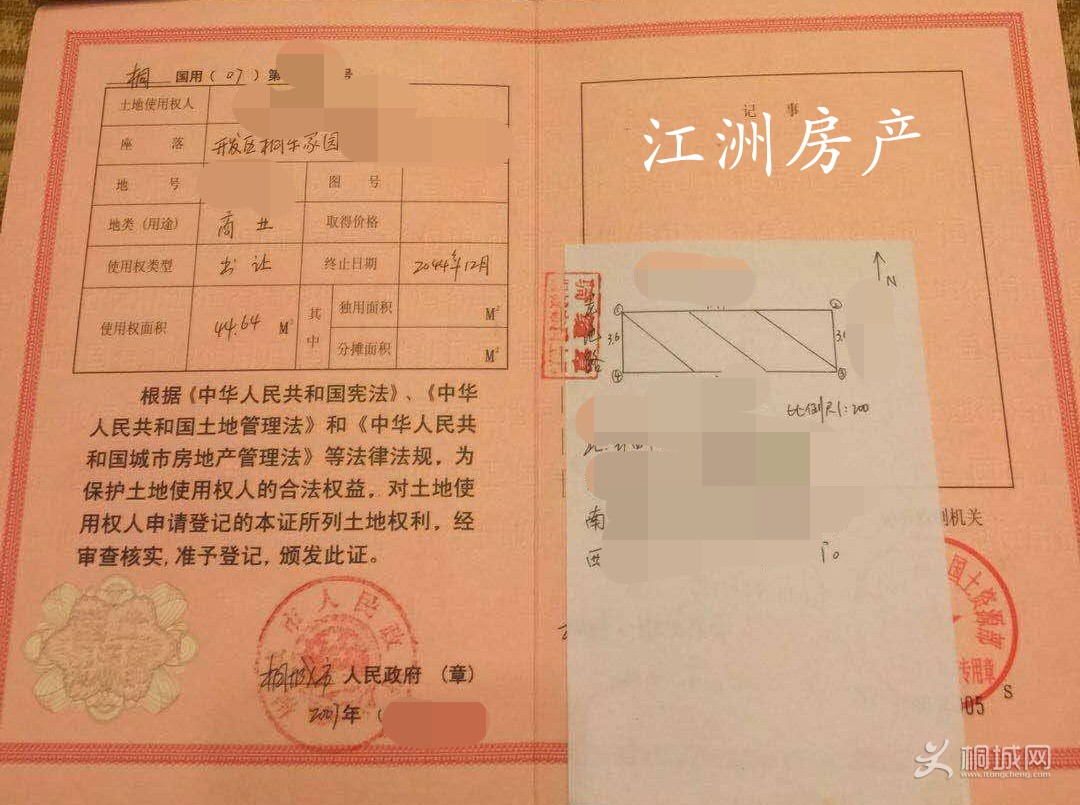 桐 国用(07)第 号
土地使用权人
座 落 开发区桐乐家园
地 号 图 号
地类(用途) 商业 取得价格
使用权类型 出让 终止日期 2044年12月
使用权面积 44.64 M² 其中 独用面积 M²
分摊面积 M²
根据《中华人民共和国宪法》、《中华
人民共和国土地管理法》和《中华人民共
和国城市房地产管理法》等法律法规，为
保护土地使用权人的合法权益，对土地使
用权人申请登记的本证所列土地权利，经
审查核实,准予登记,颁发此证。
市人民政
桐城市 人民政府 (章)
2007年
记 事
江洲房产
N
3.6
3.1
比例尺1:200
南
西
机关
国土资源部
专用章
005 S
桐城网
www.itongcheng.com